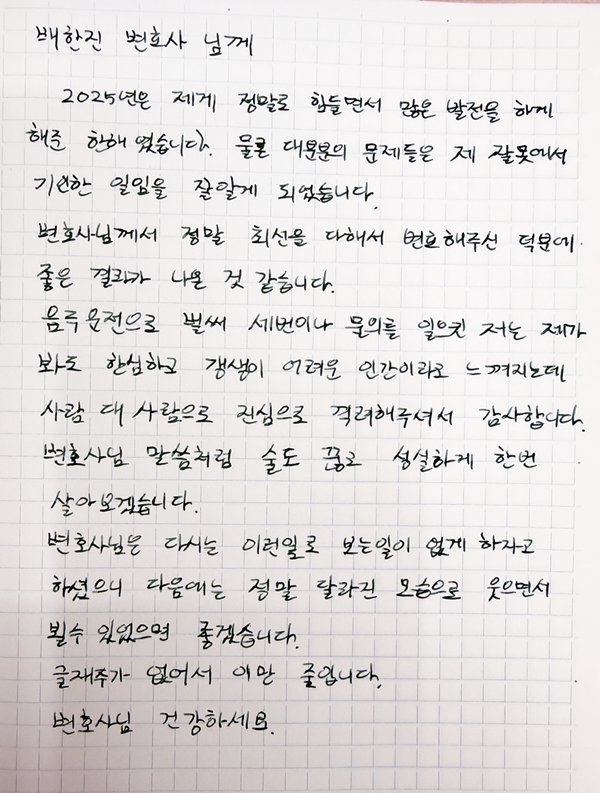 백한진 변호사 님께
2025년은 제게 정말로 힘들면서 많은 발전을 하게
해준 한해 였습니다. 물론 대부분의 문제들은 제 잘못에서
기인한 일임을 잘알게 되었습니다.
변호사님께서 정말 최선을 다해서 변호해주신 덕분에
좋은 결과가 나온 것 같습니다.
음주운전으로 벌써 세번이나 물의를 일으킨 저는 제가
봐도 한심하고 갱생이 어려운 인간이라고 느껴지는데
사람 대 사람으로 진심으로 격려해주셔서 감사합니다.
변호사님 말씀처럼 술도 끊고 성실하게 한번
살아보겠습니다.
변호사님은 다시는 이런일로 보는일이 없게 하자고
하셨으니 다음에는 정말 달라진 모습으로 웃으면서
뵐수 있었으면 좋겠습니다.
글재주가 없어서 이만 줄입니다.
변호사님 건강하세요.